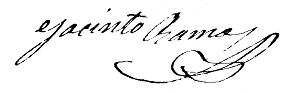 Jacinto Ramos